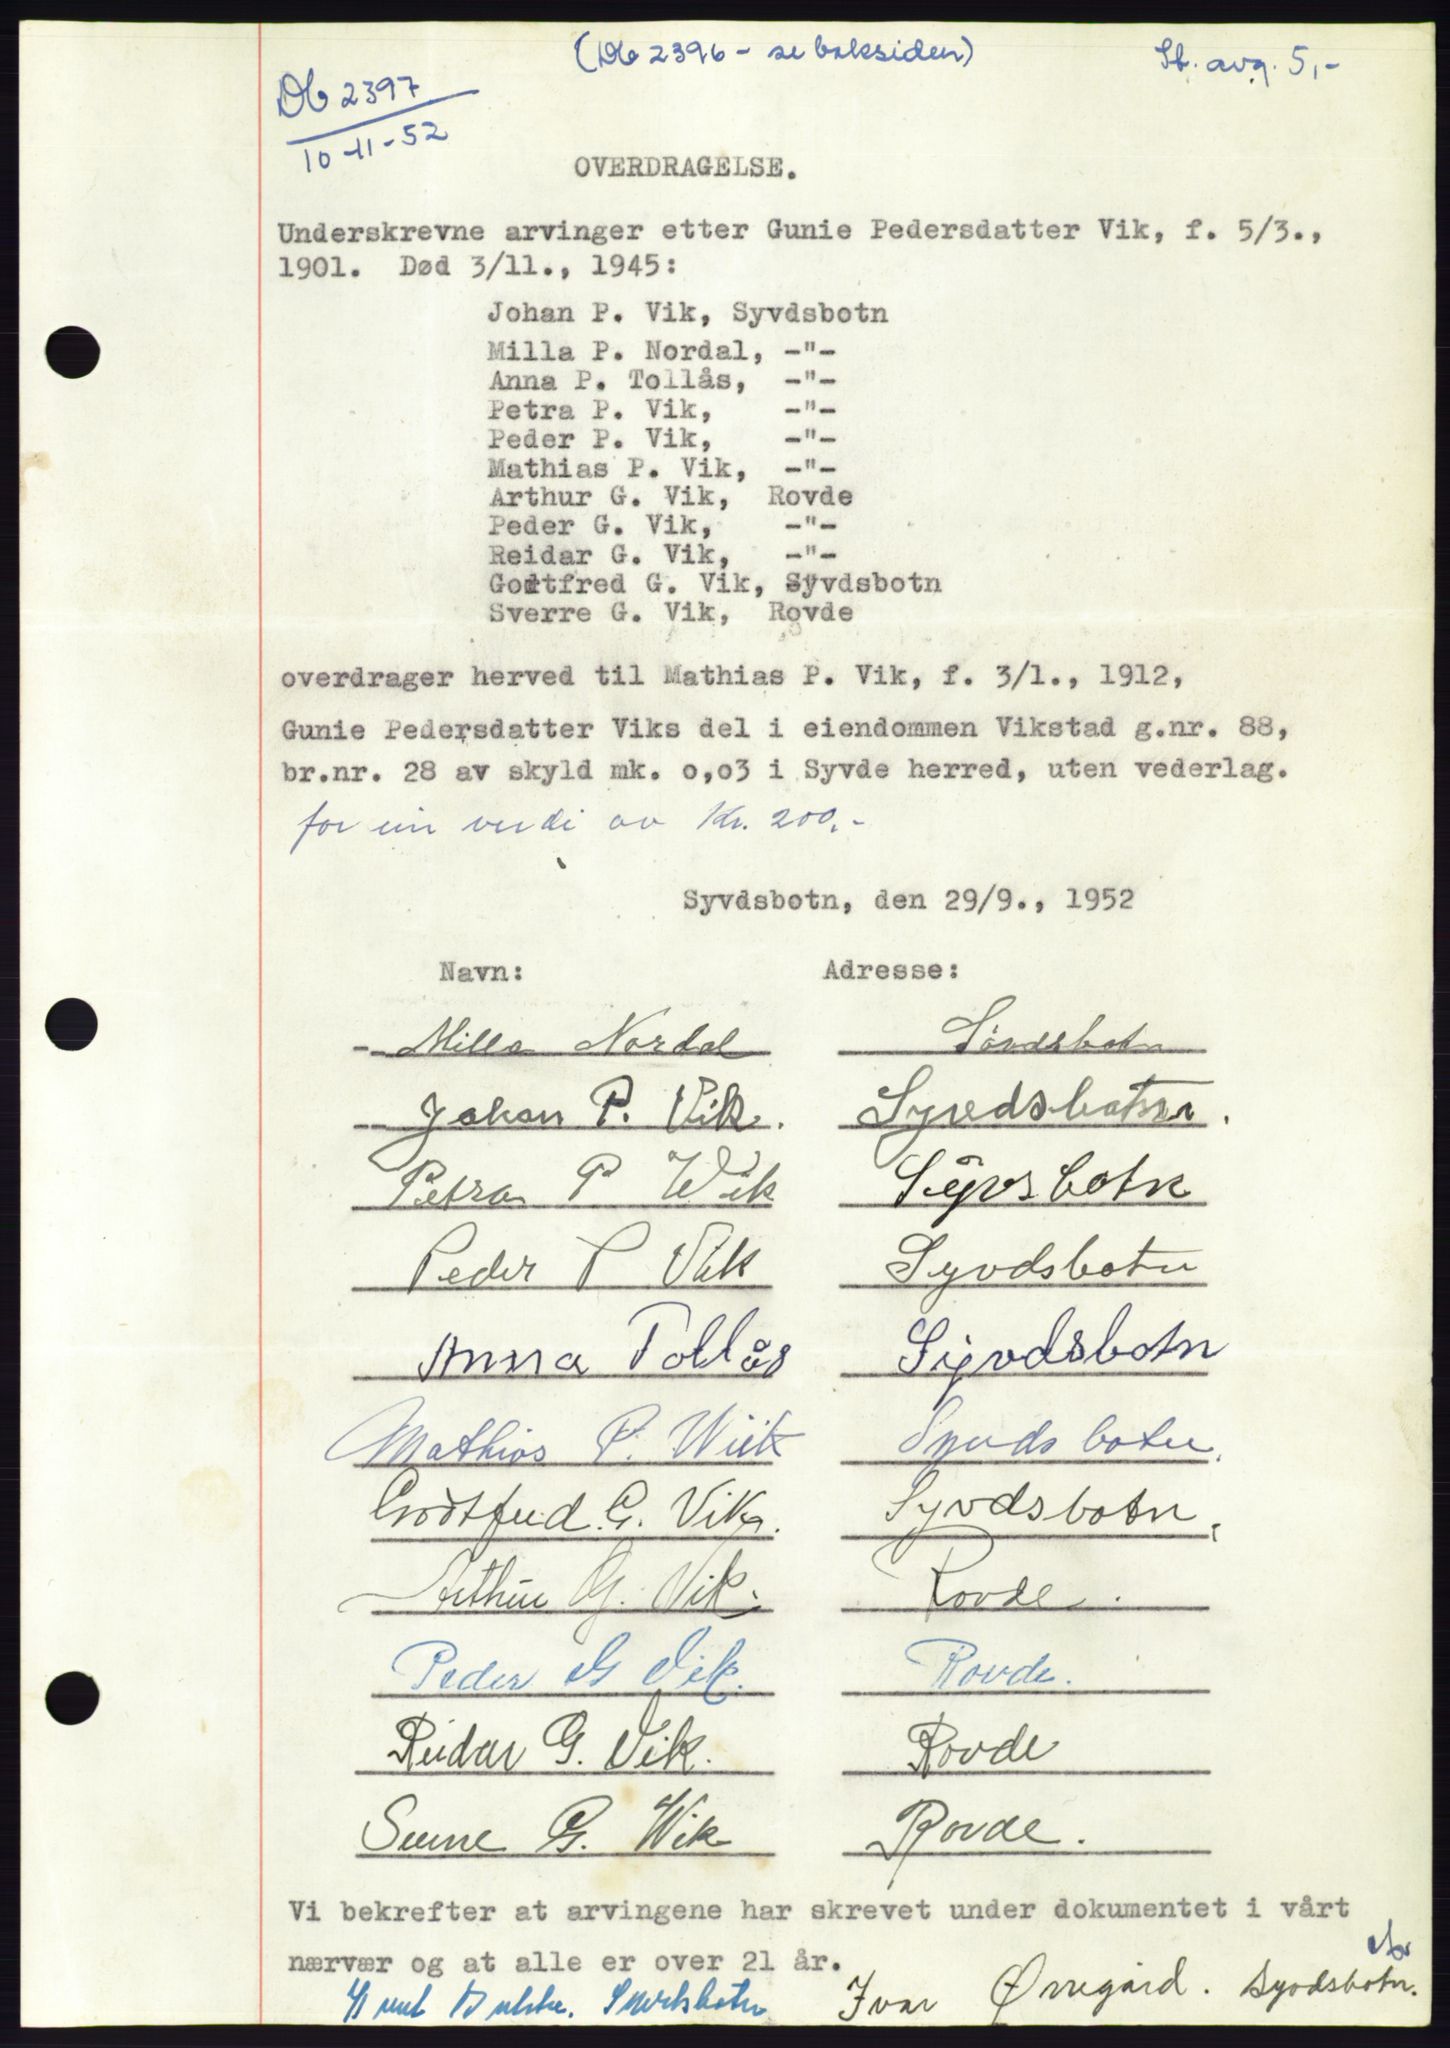 (Db 2396 - se baksiden)
St. avg. 5,-
Db 2397
10-11-52
OVERDRAGELSE.
Underskrevne arvinger etter Gunie Pedersdatter Vik, f. 5/3.,
1901. Død 3/11., 1945:
Johan P. Vik, Syvdsbotn
Milla P. Nordal, -"-
Anna P. Tollås, -"-
Petra P. Vik, -"-
Peder P. Vik, -"-
Mathias P. Vik, -"-
Arthur G. Vik, Rovde
Peder G. Vik, -"-
Reidar G. Vik, -"-
Godtfred G. Vik, Syvdsbotn
Sverre G. Vik, Rovde
overdrager herved til Mathias P. Vik, f. 3/1., 1912,
Gunie Pedersdatter Viks del i eiendommen Vikstad g.nr. 88,
br.nr. 28 av skyld mk. o,o3 i Syvde herred, uten vederlag.
for ein verdi av Kr. 200,-
Syvdsbotn, den 29/9., 1952
Navn: Adresse:
Milla Nordal Sövdsbotn
Johan P. Vik. Syvdsbotn.
Petra P Wik Syvsbotn
Peder P Vik Syvdsbotn
Anna Tollås Syvdsbotn
Mathias P. Wiik Syvdsbotn.
Godtfred G. Vik. Syvdsbotn.
Arthur G. Vik. Rovde.
Peder G Vik. Rovde.
Reidar G. Vik. Rovde
Sverre G. Wik Rovde.
Vi bekrefter at arvingene har skrevet under dokumentet i vårt
nærvær og at alle er over 21 år.
Knut Syvdsbotn Ivar Ørregård. Syvdsbotn.